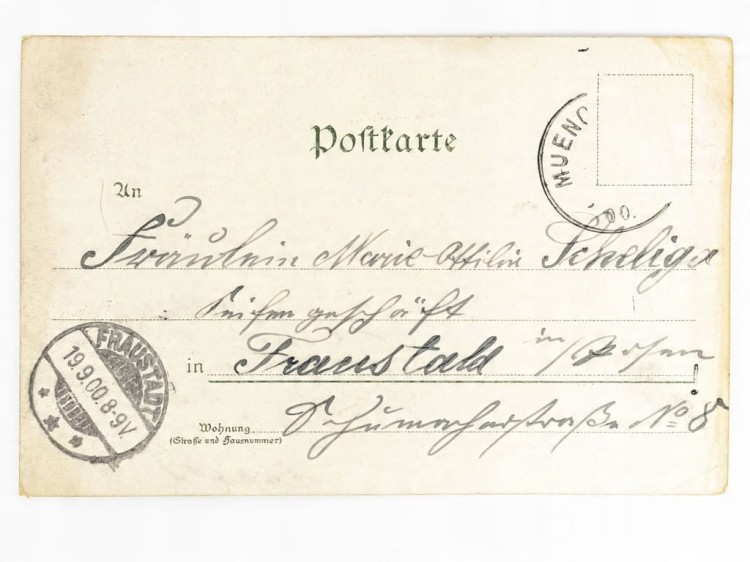 Postkarte
MUENC
00.
An
Fräulein Marie-Ottilie Scheliga
Seifengeschäft
in Fraustadt in Posen
Wohnung
(Straße und Hausnummer)
Schumacherstraße No 8
FRAUSTADT
19.9.00.8-9V.